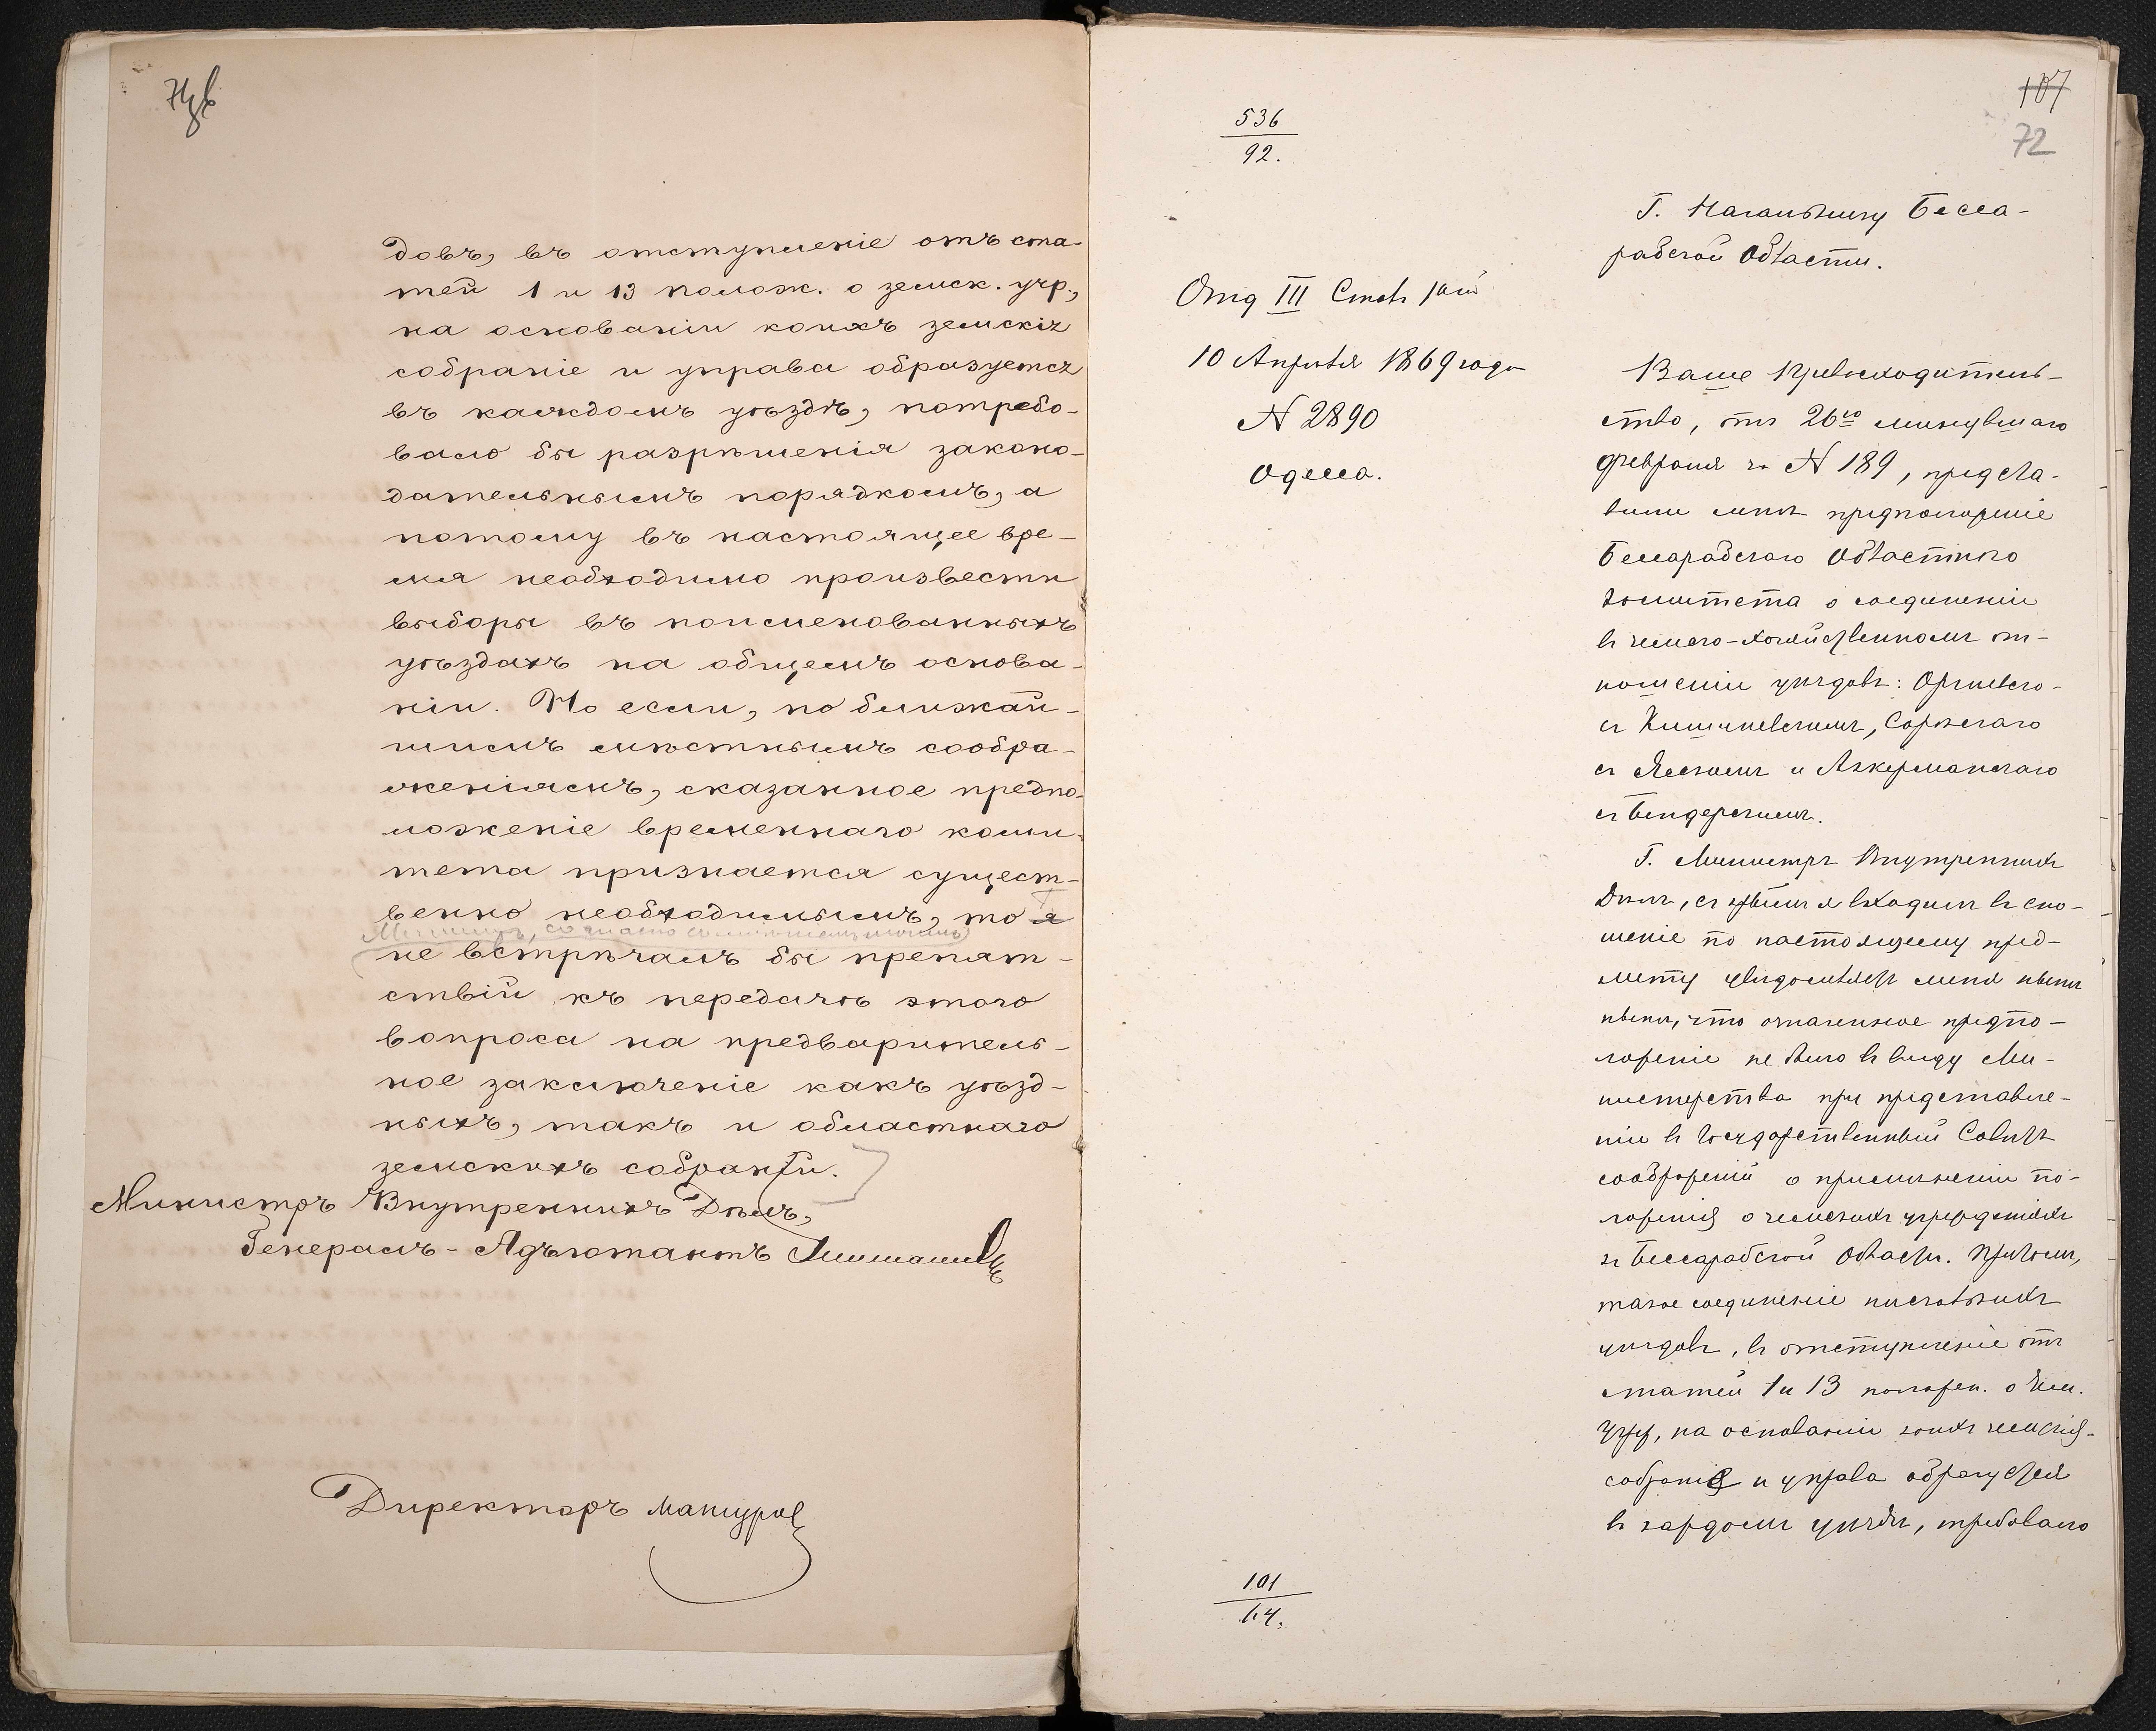 довъ, въ отступленіе отъ ста-
тей 1 и 13 полож. о земск. учр.,
на основаніи коихъ земскія
собраніе и управа образуется
въ каждомъ уѣздѣ, потребо-
вало бы разрѣшенія законо-
дательнымъ порядкомъ, а
потому въ настоящее вре-
мя необходимо произвести
выборы въ поименованныхъ
уѣздахъ на общемъ основа-
ніи. Но если, по ближай-
шимъ мѣстнымъ сообра-
женіямъ, сказанное предпо-
ложеніе временнаго коми-
тета признается сущест-
венно необходимымъ, то я
не встрѣчалъ бы препят-
ствій къ передачѣ этого
вопроса на предваритель-
ное заключеніе какъ уѣзд-
ныхъ, такъ и областнаго
земскихъ собраній.
Министръ Внутреннихъ Дѣлъ,
Генералъ-Адъютантъ Тимашевъ
Директоръ Мансуров
107
72
536
92.
Г. Начальнику Бесса-
рабской Области.
Отд III Столъ 1ый
10 Апрѣля 1869 года
N 2890
Одесса.
Ваше Превосходитель-
ство, отъ 26го минувшаго
февраля за N 189, предста-
вили мнѣ предположеніе
Бессарабскаго Областного
Комитета о соединеніи
въ земско-хозяйственномъ от-
ношеніи уѣздовъ: Оргѣевско-
съ Кишиневскимъ, Сорокскаго
съ Ясскимъ и Аккерманскаго
съ Бендерскимъ.
Г. Министръ Внутреннихъ
Дѣлъ, съ коимъ я входилъ въ сно-
шеніе по настоящему пред-
мету увѣдомляетъ меня нынѣ
нынѣ, что означенное предпо-
ложеніе не было въ виду Ми-
нистерства при представле-
ніи въ Государственный Совѣтъ
соображеній о примѣненіи по-
ложенія о земскихъ учрежденіяхъ
къ Бессарабской Области. Притомъ,
такое соединеніе нѣсколькихъ
уѣздовъ, въ отступленіе отъ
статей 1 и 13 положен. о Зем.
Учр, на основаніи коихъ земскія-
собраніе и управа образуется
въ каждомъ уѣздѣ, требовало
101
64.